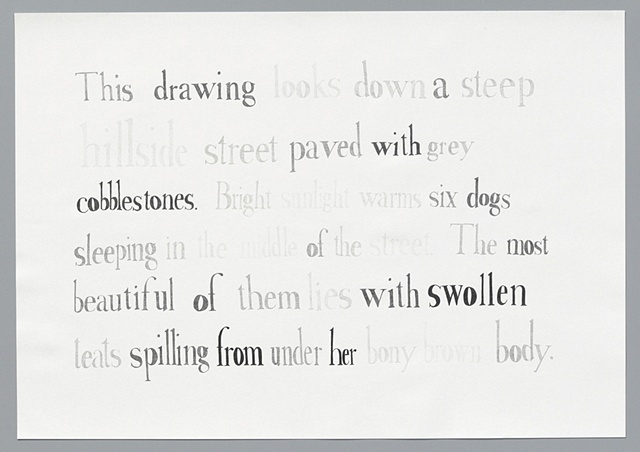 This drawing looks down a steep
hillside street paved with grey
cobblestones. Bright sunlight warms six dogs
sleeping in the middle of the street. The most
beautiful of them lies with swollen
teats spilling from under her bony brown body.